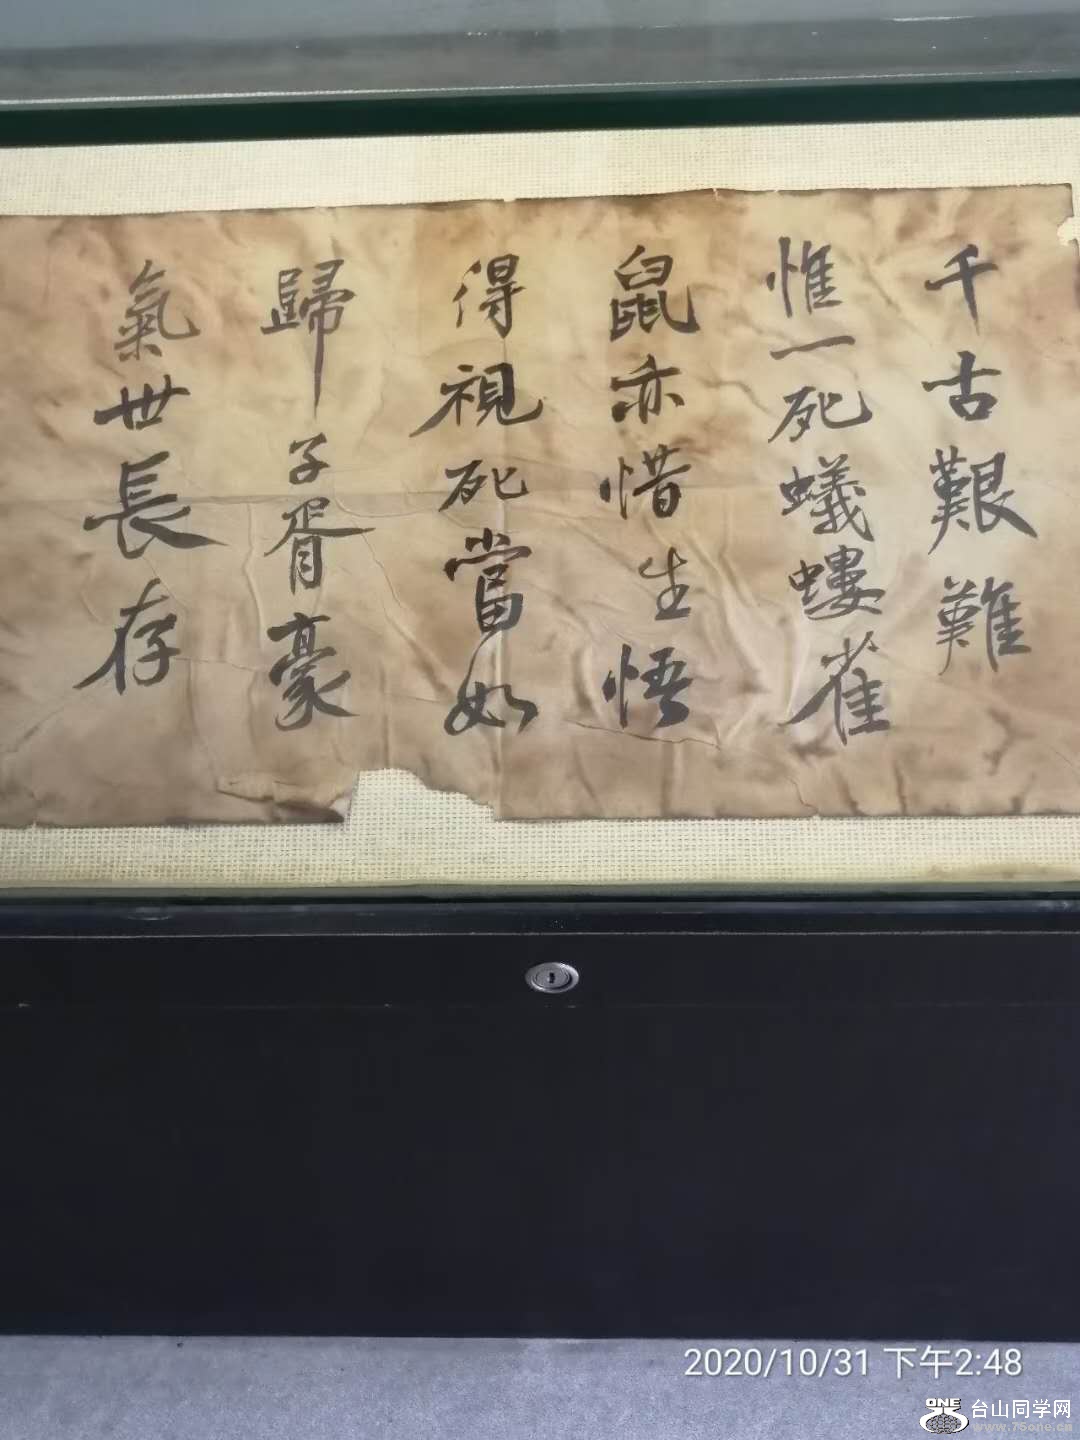 千古艱難
惟一死蟻螻雀
鼠亦惜生悟
得視死當如
歸 子胥豪
氣世長存
2020/10/31 下午2:48
ONE
台山同学网
www.75one.cn